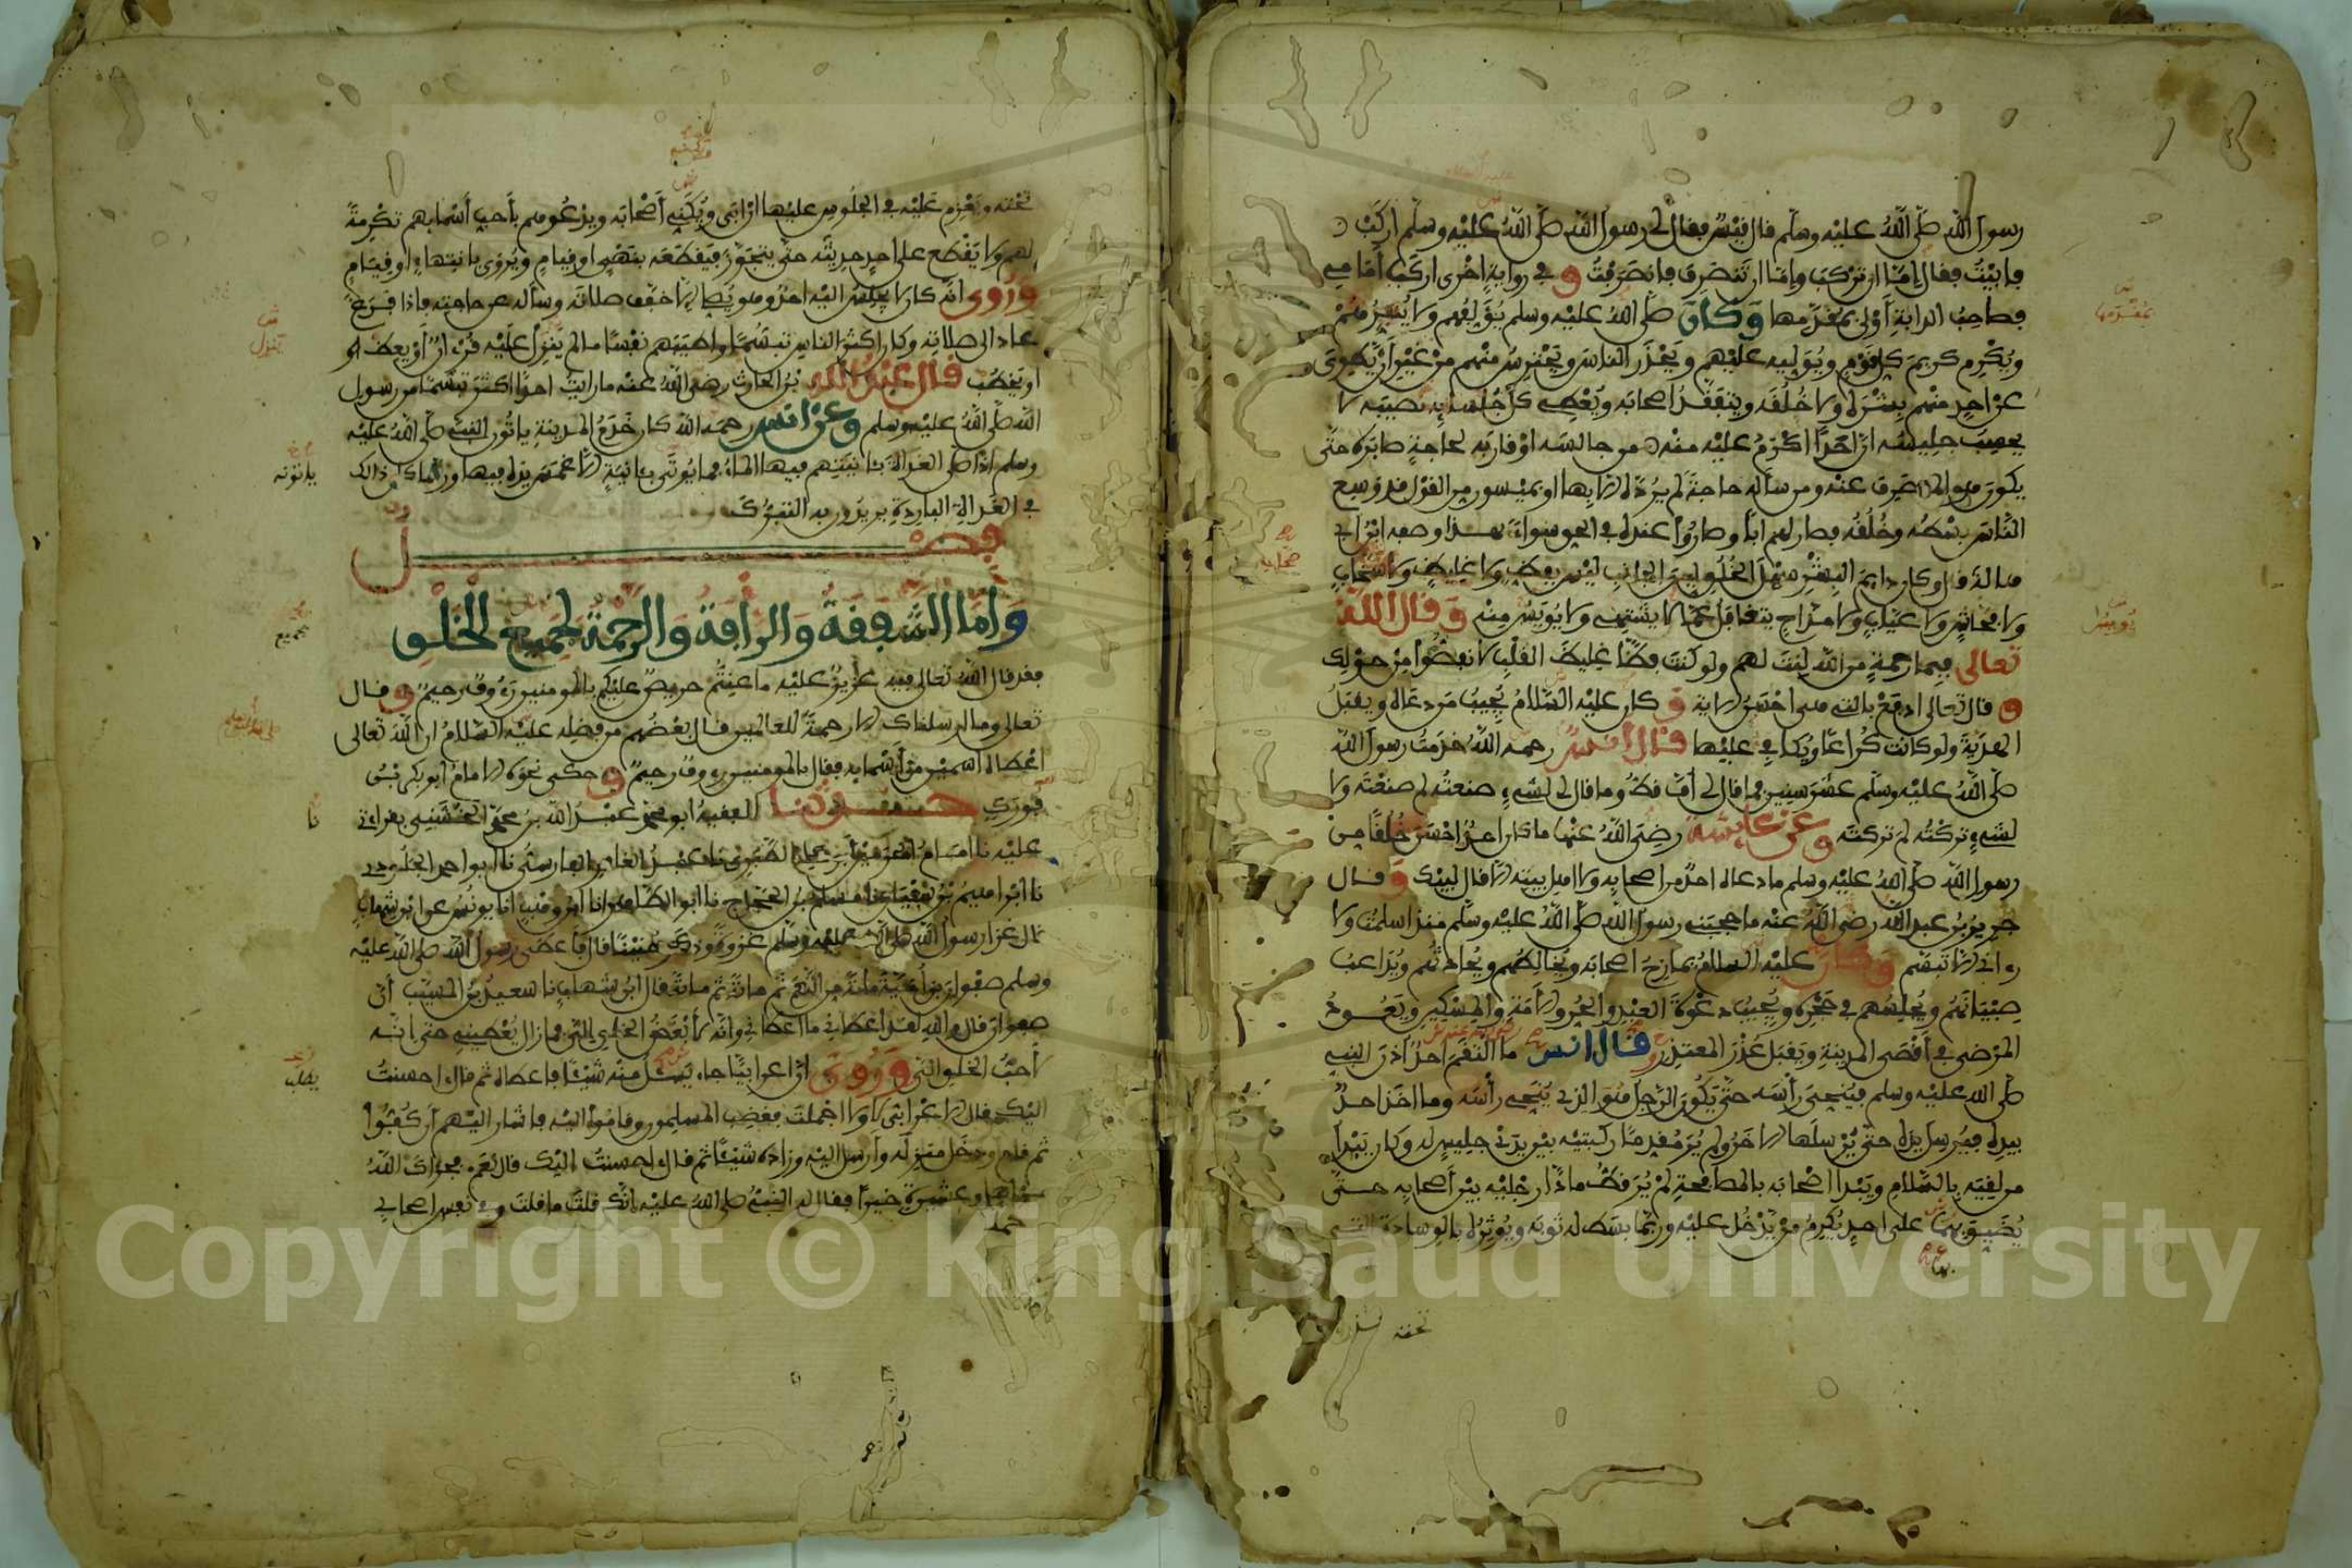 رسول الله صلى الله عليه وسلم قال قيس فقال لي رسول الله صلى الله عليه وسلم اركب
فابيت فقال إما ان تركب واما ان تنصرف فانصرفت و في رواية اخرى اركب أمامي
فصاحب الدابة أولى بمقدمها وكان صلى الله عليه وسلم يؤلفهم ولا ينفرهم
ويكرم كريم كل قوم ويوليه عليهم ويحذر الناس ويحترس منهم من غير أن يطوي
عن احد منهم بشره ولا خلقه ويتفقد اصحابه ويعطي كل جلسائه نصيبه لا
يحسب جليسه ان احدا اكرم عليه منه من جالسه او قاربه لحاجة صابره حتى
يكون هو المنصرف عنه ومن سأله حاجة لم يرده الا بها او بميسور من القول قد وسع
الناس بسطه وخلقه فصار لهم أبا وصاروا عنده في الحق سواء بهذا وصفه ابن ابي
هالة قال وكان دايم البشر سهل الخلق لين الجانب ليس بفظ ولا غليظ ولا سخاب
ولا فحاش ولا عياب ولا مداح يتغافل عما لا يشتهي ولا يويس منه وقال الله
تعالى فبما رحمة من الله لنت لهم ولو كنت فظا غليظ القلب لانفضوا من حولك
و قال تعالى ادفع بالتي هي احسن الاية و كان عليه السلام يجيب من دعاه ويقبل
الهدية ولو كانت كراعا ويكافي عليها قال انس رحمه الله خدمت رسول الله
صلى الله عليه وسلم عشر سنين فما قال لي أف قط وما قال لي لشيء صنعته لم صنعته ولا
لشيء تركته لم تركته وعن عايشة رضي الله عنها ما كان احد احسن خلقا من
رسول الله صلى الله عليه وسلم ما دعاه احد من اصحابه ولا اهل بيته الا قال لبيك وقال
جرير بن عبد الله رضي الله عنه ما حجبني رسول الله صلى الله عليه وسلم منذ اسلمت ولا
رءاني الا تبسم وكان عليه السلام يمازح اصحابه ويخالطهم ويحادثهم ويداعب
صبيانهم ويجلسهم في حجره ويجيب دعوة العبد والحر والأمة والمسكين ويعود
المرضى في أقصى المدينة ويقبل عذر المعتذر قال انس ما التقم احد أذن النبي
صلى الله عليه وسلم فينحي رأسه حتى يكون الرجل هو الذي ينحي رأسه وما اخذ احد
بيده فيرسل يده حتى يرسلها الاخذ ولم ير مقدما ركبتيه بين يدي جليس له وكان يبدأ
من لقيه بالسلام ويبدا اصحابه بالمصافحة لم ير قط مادا رجليه بين أصحابه حتى
يضيق بهما على احد يكرم من يدخل عليه وربما بسط له ثوبه ويوثره بالوسادة التي
تحته
بمقدمها
يويس
تحته ويعزم عليه في الجلوس عليها ان ابى ويكني أصحابه ويدعوهم بأحب أسمايهم تكرمة
لهم ولا يقطع على احد حديثه حتى يتجوز فيقطعه بنهي او قيام ويروى بانتهاء او قيام
وروى انه كان لا يجلس اليه احد وهو يصلي الا خفف صلاته وسأله عن حاجته فاذا فرغ
عاد الى صلاته وكان اكثر الناس تبسما واطيبهم نفسا ما لم ينزل عليه قرءان أو يعظ او
او يخطب قال عبد الله بن الحارث رضي الله عنه ما رايت احدا اكثر تبسما من رسول
الله صلى الله عليه وسلم وعن انس رحمه الله كان خدم المدينة ياتون النبي صلى الله عليه
وسلم اذا صلى الغداة بآنيتهم فيها الماء فما يوتى بآنية الا غمس يده فيها وربما كان ذالك
في الغداة الباردة يريدون به التبرك
فصل
وأما الشفقة والرأفة والرحمة لجميع الخلق
فقد قال الله تعالى فيه عزيز عليه ما عنتم حريص عليكم بالمومنين رءوف رحيم و قال
تعالى وما ارسلناك الا رحمة للعالمين قال بعضهم من فضله عليه السلام ان الله تعالى
اعطاه اسمين من أسمايه فقال بالمومنين رءوف رحيم و حكى نحوه الامام أبو بكر بن
فورك حدثنا الفقيه ابو محمد عبد الله بن محمد الخشني بقراءتي
عليه نا امام الحرمين أبو علي الطبري نا عبد الغافر الفارسي نا ابو احمد الجلودي
نا ابراهيم بن سفيان نا مسلم بن الحجاج نا ابو الطاهر انا ابن وهب انا يونس عن ابن شهاب
قال غزا رسول الله صلى الله عليه وسلم غزوة وذكر حنينا قال فأعطى رسول الله صلى الله عليه
وسلم صفوان بن أمية مائة من النعم ثم مائة ثم مائة قال ابن شهاب نا سعيد بن المسيب أن
صفوان قال والله لقد أعطاني ما اعطاني وانه لأبغض الخلق إلي فما زال يعطيني حتى انه
لأحب الخلق إلي وروي ان اعرابيا جاءه يسئل منه شيئا فاعطاه ثم قال ءاحسنت
اليك قال الاعرابي لا ولا اجملت فغضب المسلمون وقاموا اليه فاشار اليهم أن كفوا
ثم قام ودخل منزله وأرسل اليه وزاده شيئا ثم قال ءاحسنت اليك قال نعم فجزاك الله
من اهل وعشيرة خيرا فقال له النبي صلى الله عليه انك قلت ما قلت وفي نفس اصحابي
ينزل
لجميع
نا
يطلب
Copyright © King Saud University